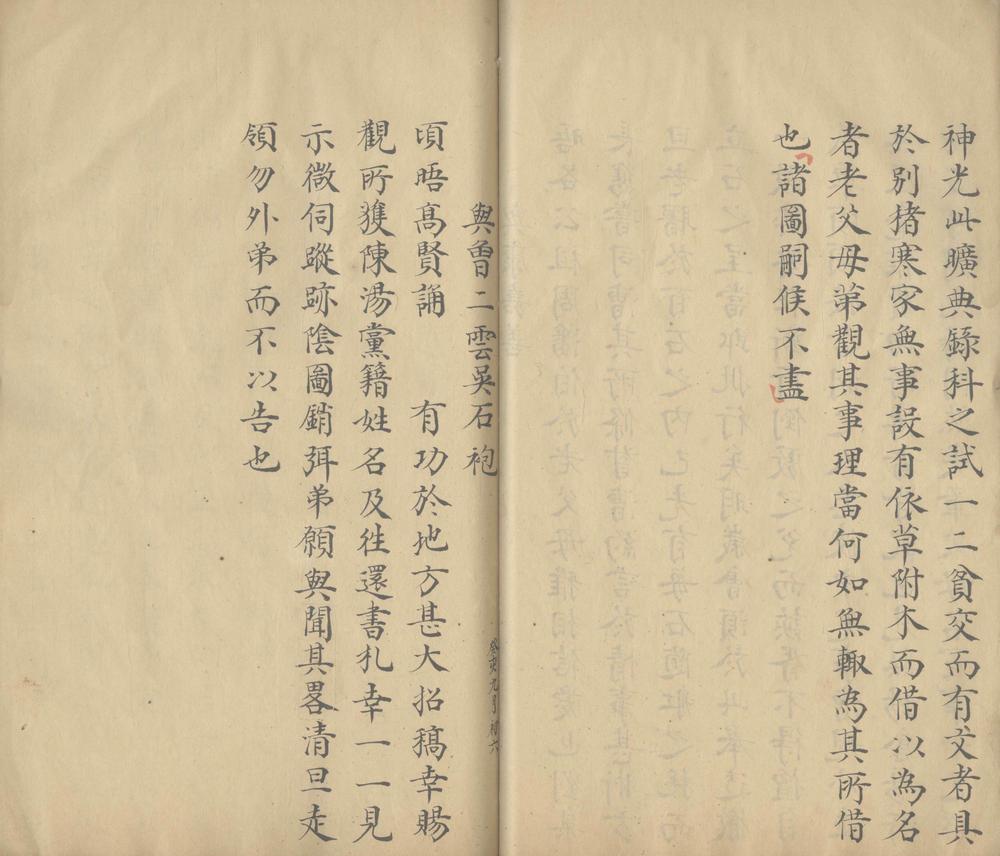 神光此曠典錄科之試一二貧交而有文者具
於別楮寒家無事設有依草附木而借以為名
者老父毋第觀其事理當何如無輙為其所借
也諸圖嗣候不盡
與曾二雲吳石袍
癸亥九月初六
頃晤髙賢誦　有功於地方甚大招稿幸賜
觀所獲陳湯黨籍姓名及往還書札幸一一見
示微伺蹤跡陰圖銷弭弟願與聞其畧清旦走
領勿外弟而不以告也